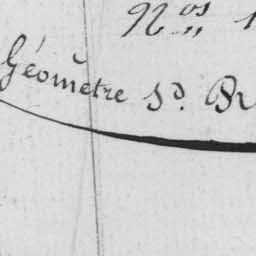 Nos
Géomètre Sd. Br